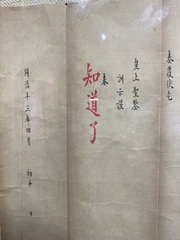 奏覆伏乞
皇上聖鑒
訓示謹
奏
知道了
同治十三年四月 初十 日